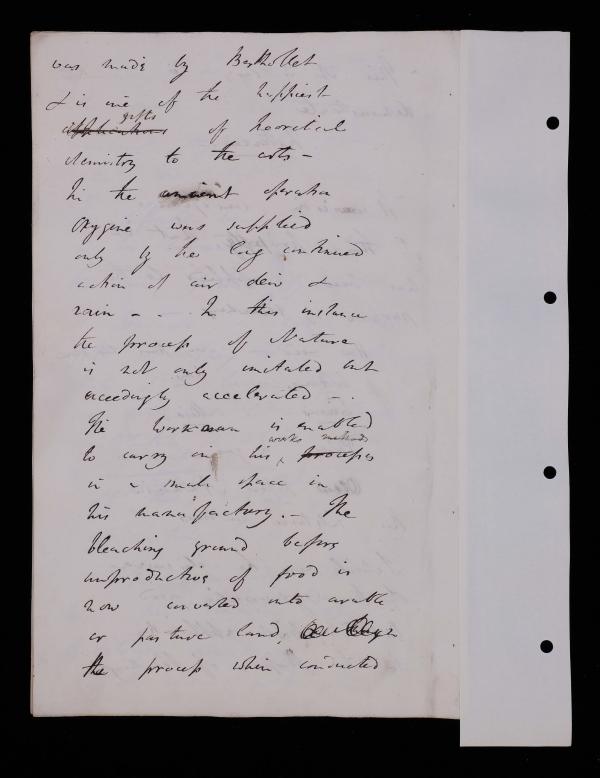 was made by Berthollet
& is one of the happiest
gifts
applications of theoretical
chemistry to the arts -
In the ancient operation
oxygene was supplied
only by the long continued
action of air dew &
rain - . In this instance
the process of Nature
is not only imitated but
exceedingly accelerated - .
The workman is enabled
works methods
to carry on his processes
in a small space in
his manufactory. - The
bleaching ground before
unproductive of food is
now converted into arable
or pasture land,
the process when conducted